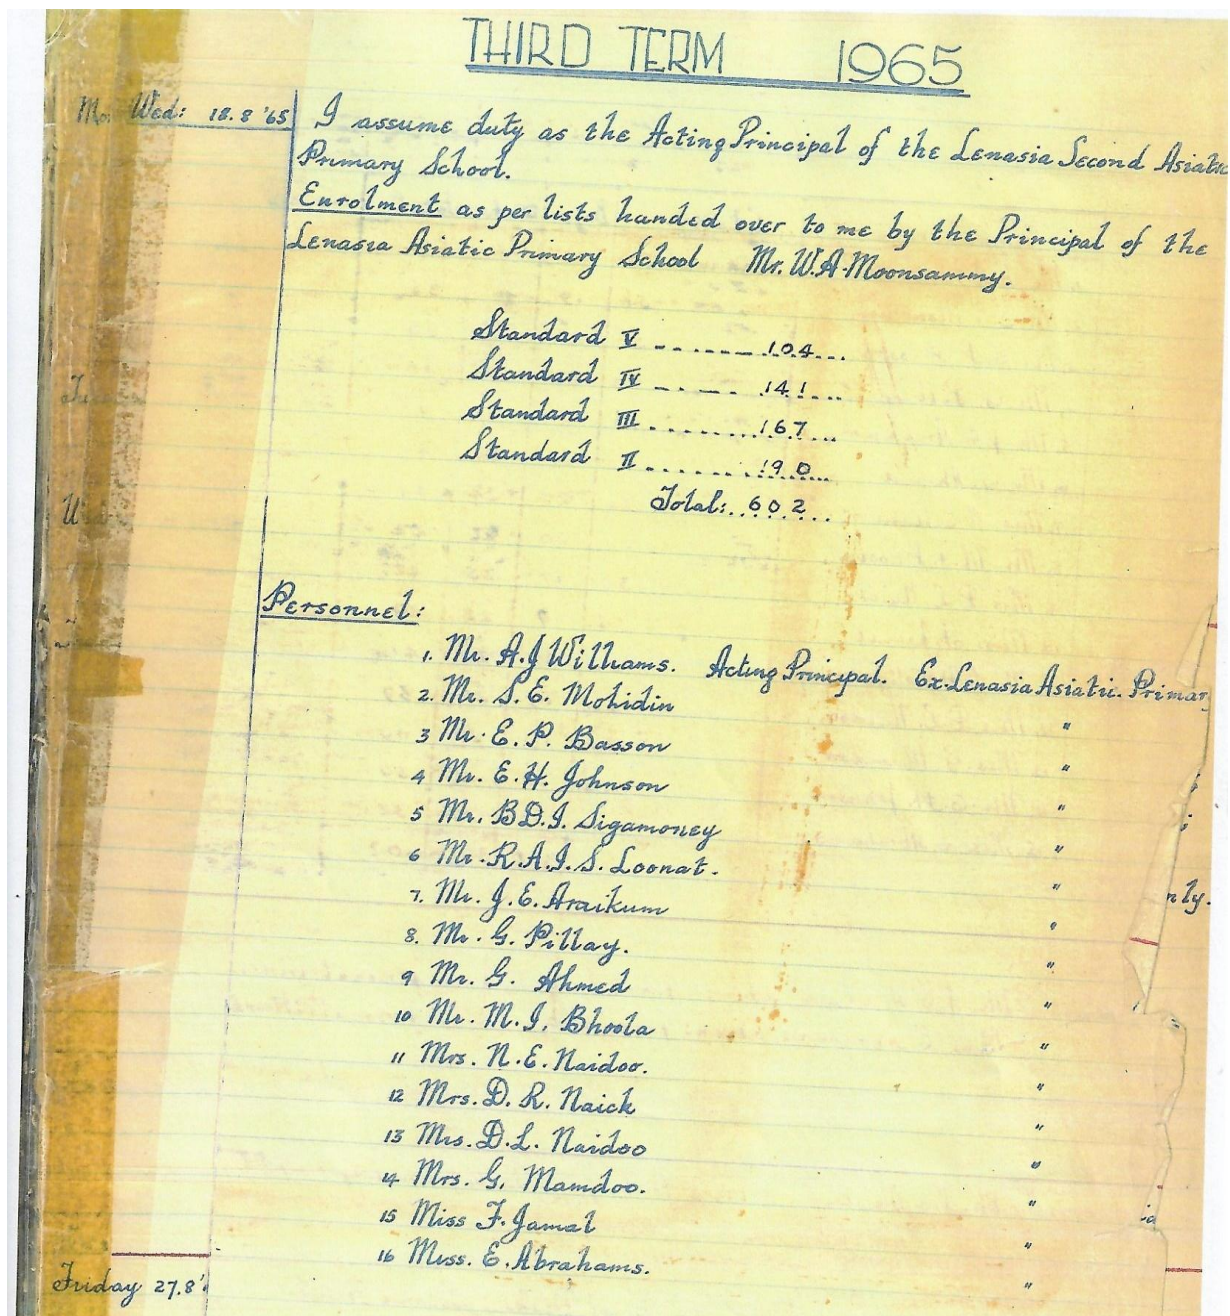 THIRD TERM 1965
Wed: 18.8 '65
I assume duty as the Acting Principal of the Lenasia Second Asiatic
Primary School.
Enrolment as per lists handed over to me by the Principal of the
Lenasia Asiatic Primary School Mr. W.A. Moonsammy.
Standard V ......... 104...
Standard IV ...... 141...
Standard III ......... 167...
Standard II ......... 190...
Total: ..602...
Personnel:
1. Mr. A.J Williams. Acting Principal. Ex-Lenasia Asiatic. Primar
2. Mr. S. E. Mohidin "
3 Mr. E. P. Basson "
4 Mr. E. H. Johnson "
5 Mr. B.D.I. Sigamoney "
6 Mr. R.A.I.S. Loonat. "
7. Mr. J. E. Araikum "
nly.
8. Mr. G. Pillay. "
9 Mr. G. Ahmed "
10 Mr. M. I. Bhoola "
11 Mrs. N. E. Naidoo. "
12 Mrs. D. R. Naick "
13 Mrs. D. L. Naidoo "
14 Mrs. G. Mamdoo. "
15 Miss F. Jamal "
16 Miss. E. Abrahams. "
Friday 27.8